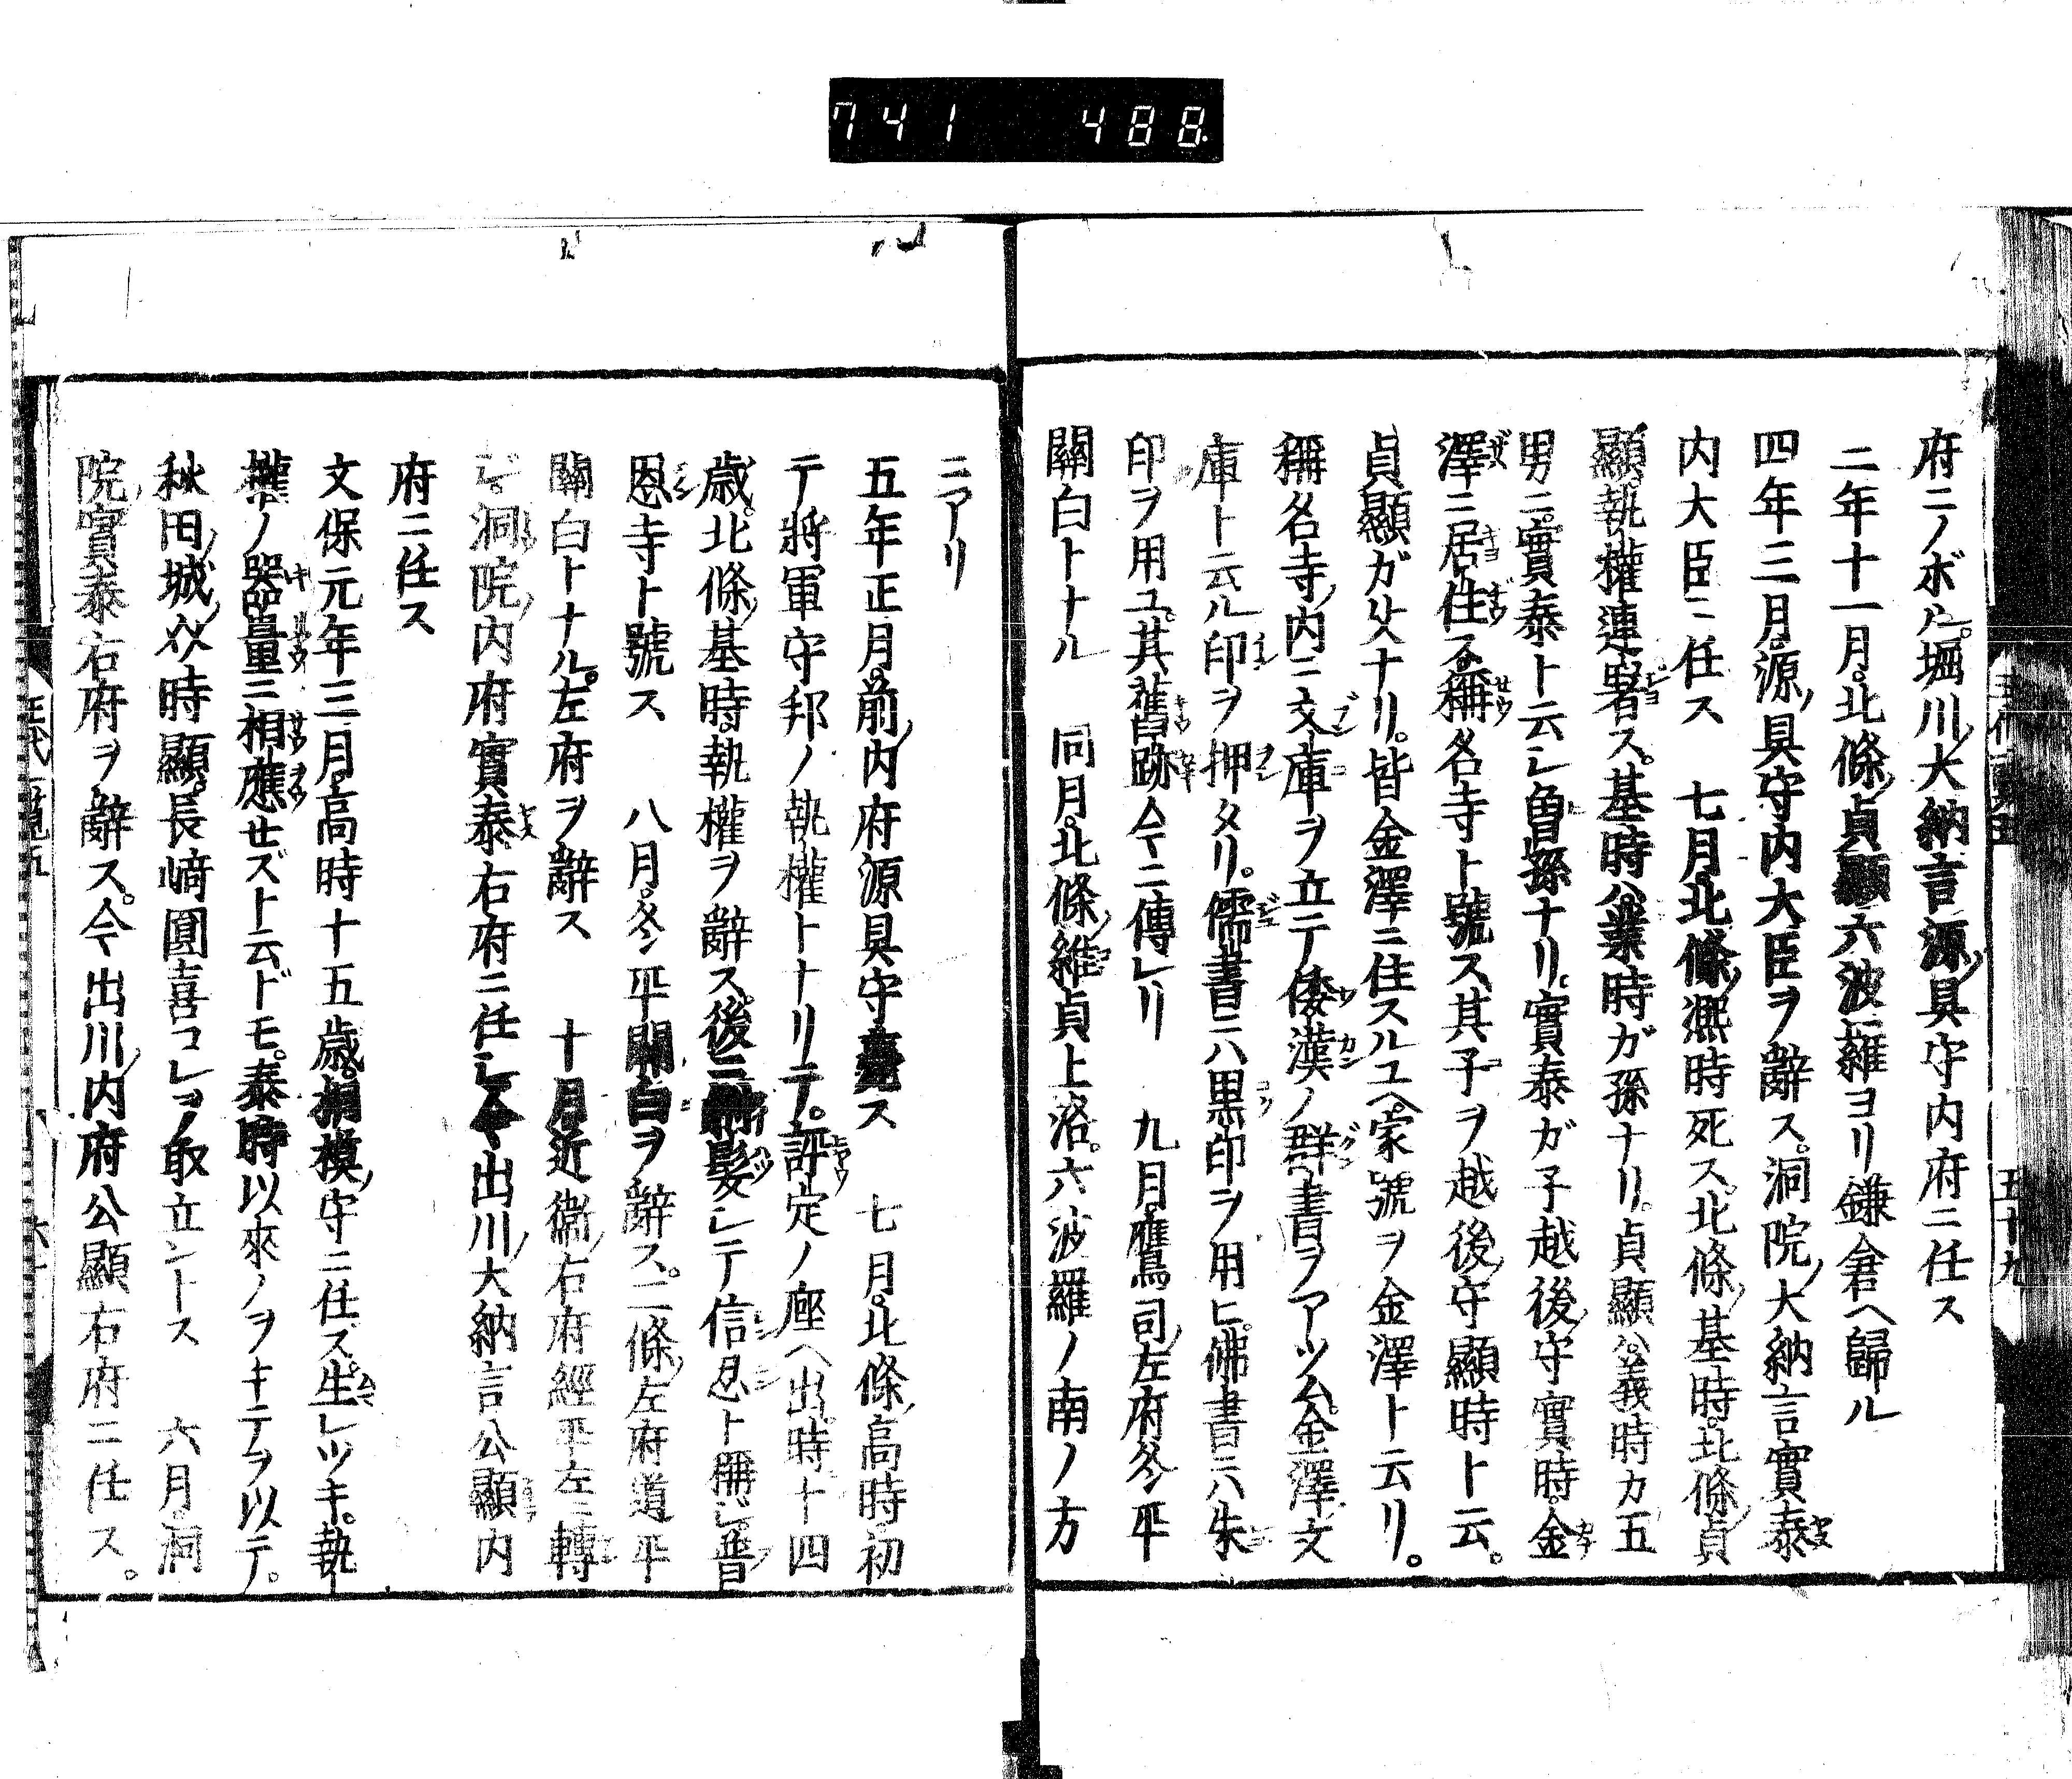 741 488
府ニノボル。堀川大納言源具守内府ニ任ス
二年十一月。北條貞顯六波羅ヨリ鎌倉ヘ歸ル
四年三月。源具守内大臣ヲ辭ス。洞院大納言實泰
内大臣ニ任ス 七月。北條凞時死ス。北條基時。北條貞
顯。執權連署ス。基時ハ業時ガ孫ナリ。貞顯ハ義時カ五
男ニ。實泰ト云シ曽孫ナリ。實泰ガ子越後守實時。金
澤ニ居住ス。稱名寺ト號ス。其子ヲ越後守顯時ト云。
貞顯ガ父ナリ。皆金澤ニ住スルユヘ。家號ヲ金澤ト云リ。
稱名寺内ニ文庫ヲ立テ倭漢ノ群書ヲアツム。金澤文
庫ト云ル印ヲ押タリ。儒書ニハ黒印ヲ用ヒ。佛書ニハ朱
印ヲ用ユ。其舊跡今ニ傳レリ 九月。鷹司左府冬平
關白トナル 同月。北條維貞上洛。六波羅ノ南ノ方
ニアリ
五年正月。前内府源具守薨ス 七月。北條高時初
テ將軍守邦ノ執權トナリテ。評定ノ座ヘ出。時十四
歳。北條基時。執權ヲ辭ス。後ニ髮シテ信忍ト稱ジ。普
恩寺ト號ス 八月。冬平關白ヲ辭ス。二條左府道平
關白トナル。左府ヲ辭ス 十月近衞右府經平左ニ轉
ジ。洞院内府實泰右府ニ任シ今出川大納言公顯内
府ニ任ス
文保元年三月。高時十五歳。相模守ニ任ズ。生レツキ。執
權ノ器量ニ相應セズト云ドモ。泰時以來ノヲキテヲ以テ。
秋田城介時顯。長﨑圓喜コレヲ取立ントス 六月。洞
院實泰右府ヲ辭ス。今出川内府公顯右府ニ任ス。
五十九